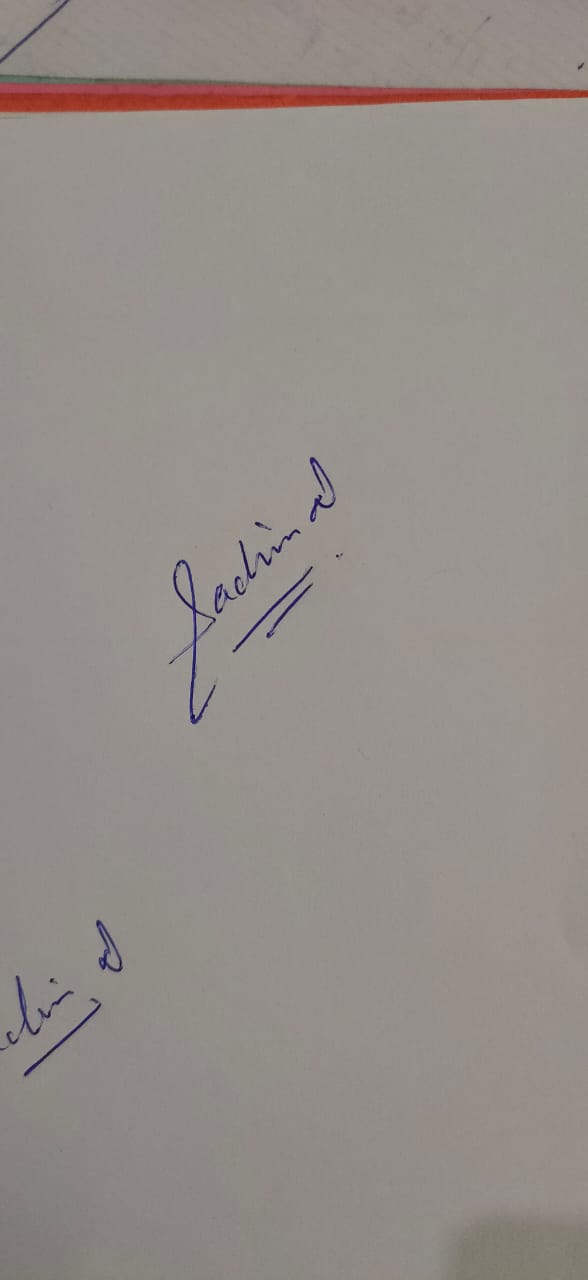 Sachin d
chin d